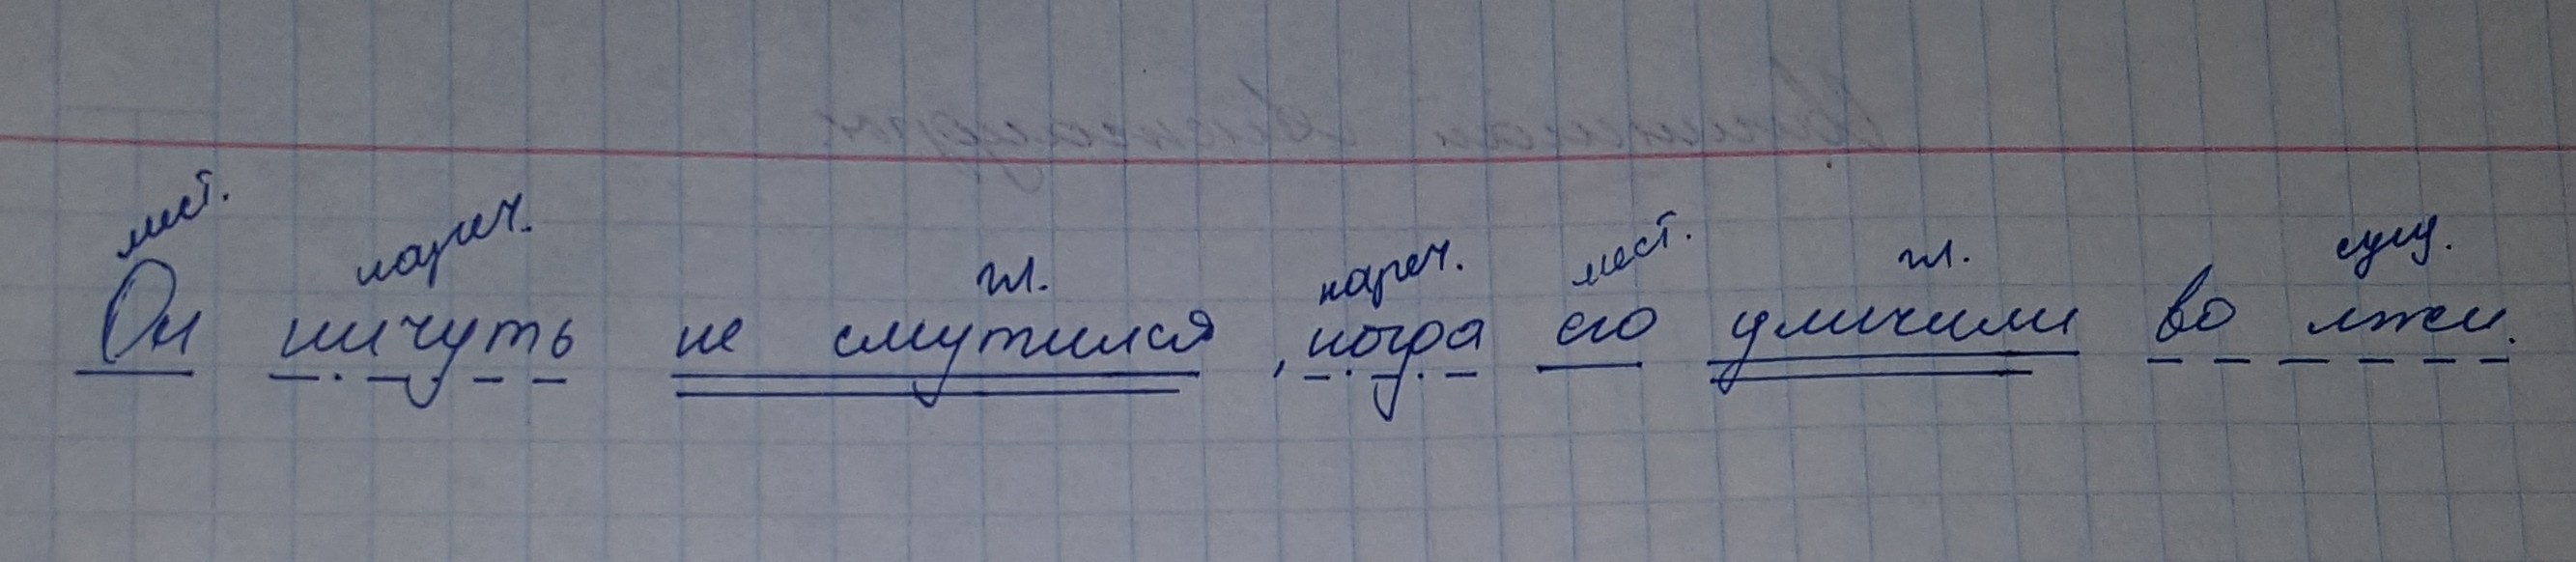 мест. нареч. гл. нареч. мест. гл. сущ.
Он ничуть не смутился, когда его уличили во лжи.